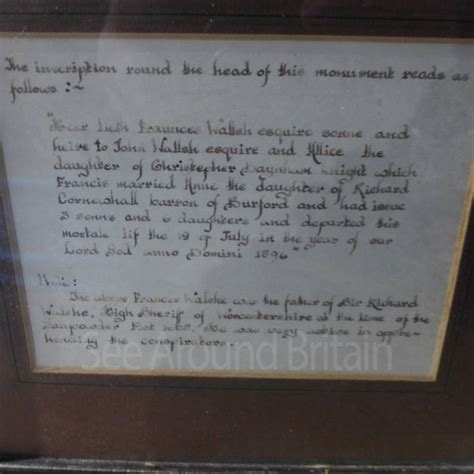 The inscription round the head of this monument reads as
follows :~
"Heer lieth Fraunces Wallsh esquire sonne and
heire to John Wallsh esquire and Allice the
daughter of Christepher Baynham knight which
Francis married Anne the daughter of Richard
Cornewhall barron of Burford and had issue
3 sonns and 6 daughters and departed this
mortale lif the 18 of July in the year of our
Lord God anno Domini 1596"
Note:
The above Frances Walshe was the father of Sir Richard
Walshe, High Sheriff of Worcestershire at the time of the
Gunpowder Plot 1605. He was very active in appre-
hending the conspirators.
See Around Britain